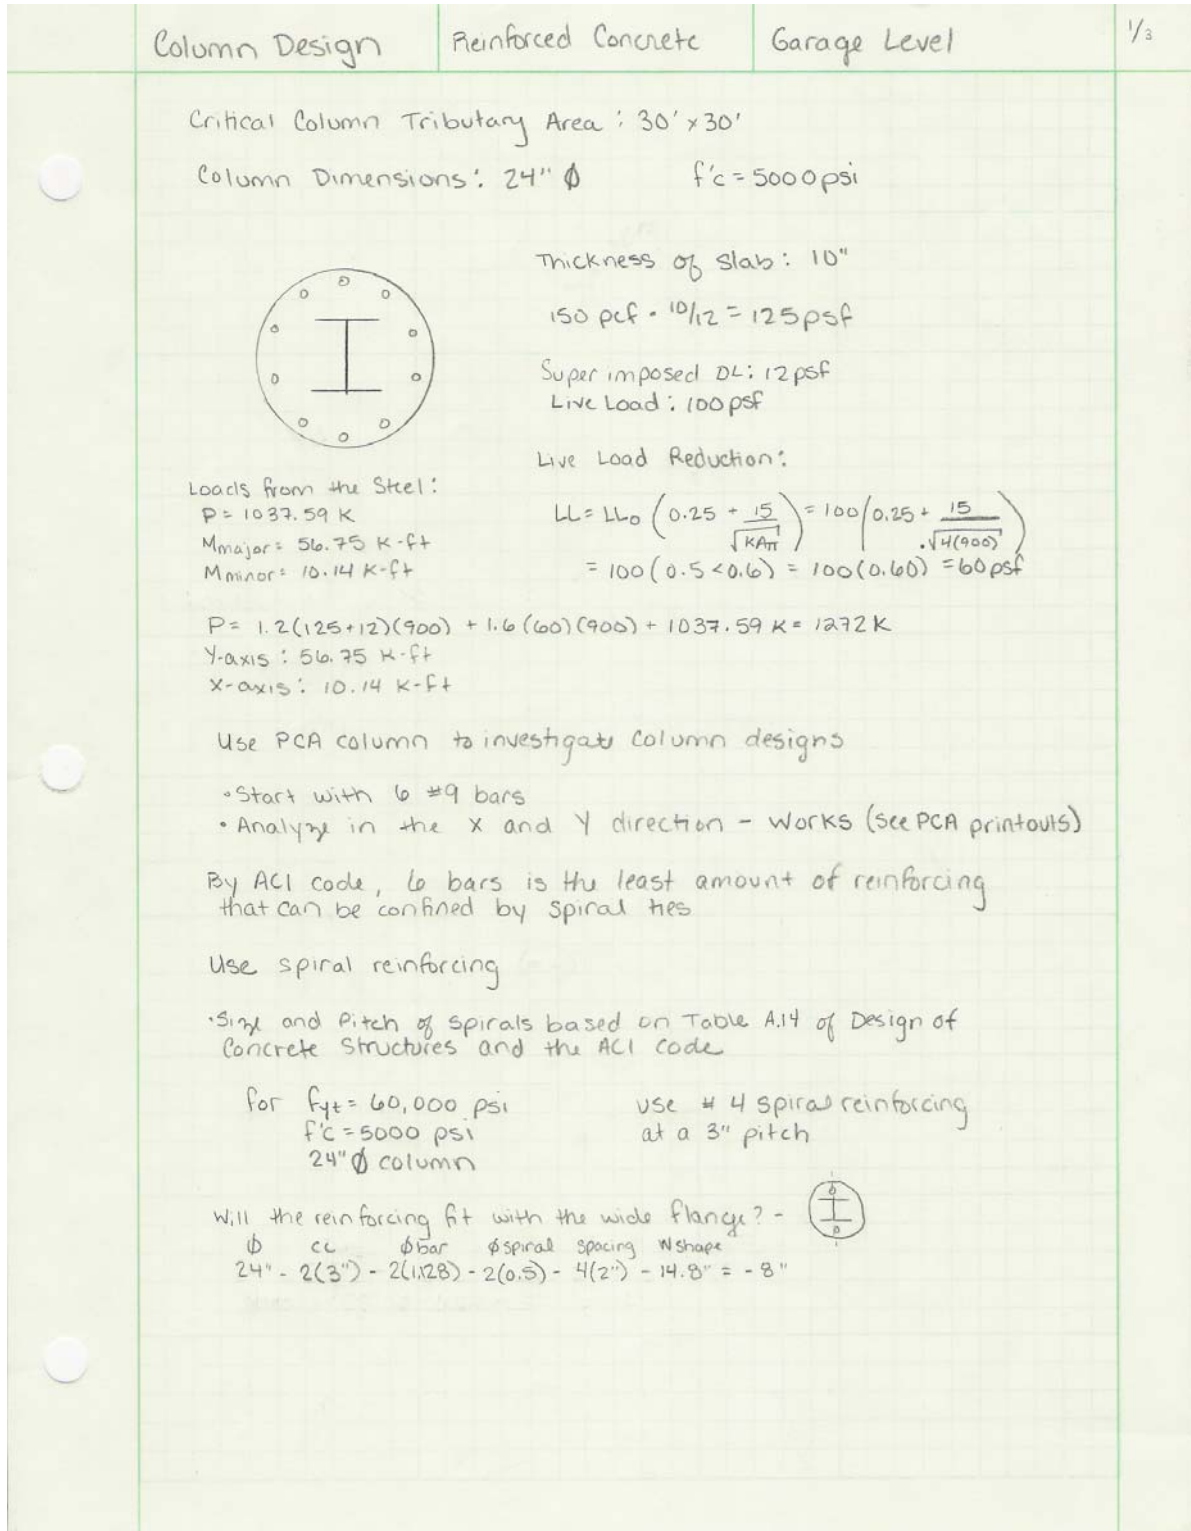 Column Design
Reinforced Concrete
Garage Level
1/3
Critical Column Tributary Area : 30' x 30'
Column Dimensions: 24" Ø
f'c = 5000psi
Thickness of slab: 10"
150 pcf · 10/12 = 125psf
Super imposed DL: 12psf
Live Load: 100psf
Live Load Reduction:
Loads from the Steel:
P = 1037.59 K
Mmajor = 56.75 K-ft
Mminor = 10.14 K-ft
LL = LLo (0.25 + 15/√KATT) = 100(0.25 + 15/√4(900))
= 100(0.5<0.6) = 100(0.60) = 60psf
P = 1.2(125+12)(900) + 1.6(60)(900) + 1037.59 K = 1272 K
Y-axis : 56.75 K-ft
X-axis: 10.14 K-ft
Use PCA column to investigate column designs
• Start with 6 #9 bars
• Analyze in the X and Y direction - works (see PCA printouts)
By ACI code, 6 bars is the least amount of reinforcing
that can be confined by spiral ties
Use spiral reinforcing
• Size and Pitch of spirals based on Table A.14 of Design of
Concrete Structures and the ACI code
for fyt = 60,000 psi
f'c = 5000 psi
24" Ø column
use # 4 spiral reinforcing
at a 3" pitch
Will the reinforcing fit with the wide flange? -
Ø cc Øbar Øspiral spacing Wshape
24" - 2(3") - 2(1.128) - 2(0.5) - 4(2") - 14.8" = -8"